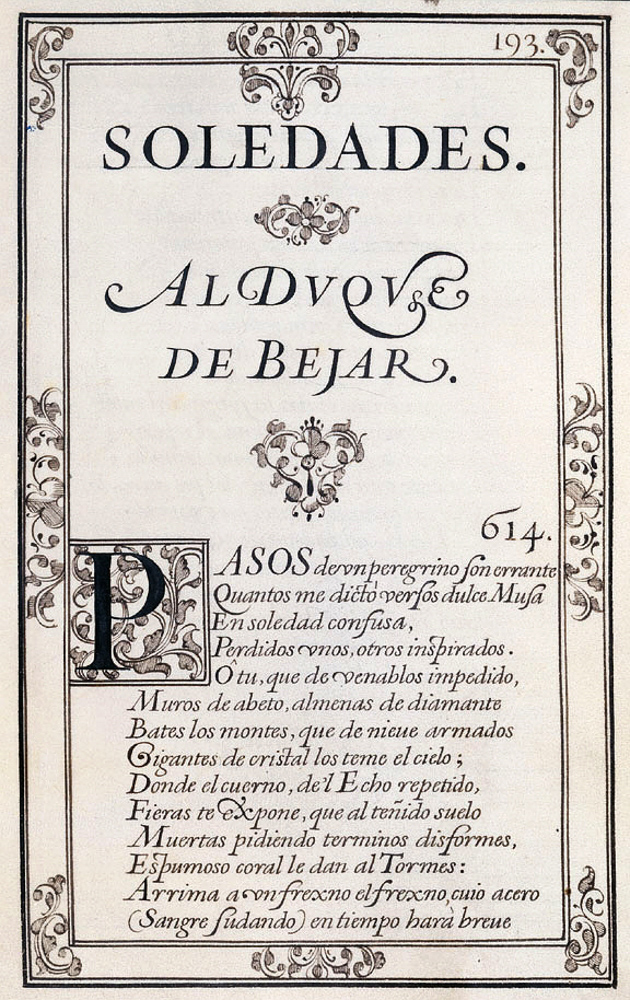 193.
SOLEDADES.
AL DVQVE
DE BEJAR.
614.
PASOS de vn peregrino son errante
Quantos me dictò versos dulce Musa
En soledad confusa,
Perdidos vnos, otros inspirados.
Ô tu, que de venablos impedido,
Muros de abeto, almenas de diamante
Bates los montes, que de nieue armados
Gigantes de cristal los teme el cielo;
Donde el cuerno, de'l Echo repetido,
Fieras te expone, que al teñido suelo
Muertas pidiendo terminos disformes,
Espumoso coral le dan al Tormes:
Arrima a vn frexno el frexno, cuio acero
(Sangre sudando) en tiempo harà breue